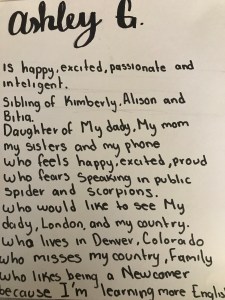 Ashley G.
Is happy, excited, passionate and
inteligent.
Sibling of Kimberly, Alison and
Bitia.
Daughter of My dady, My mom
my sisters and my phone
who feels happy, excited, proud
who fears speaking in public
spider and scorpions.
who would like to see My
dady, London, and my country.
who lives in Denver, Colorado
who misses my country, Family
who likes being a Newcomer
because I'm learning more Englis